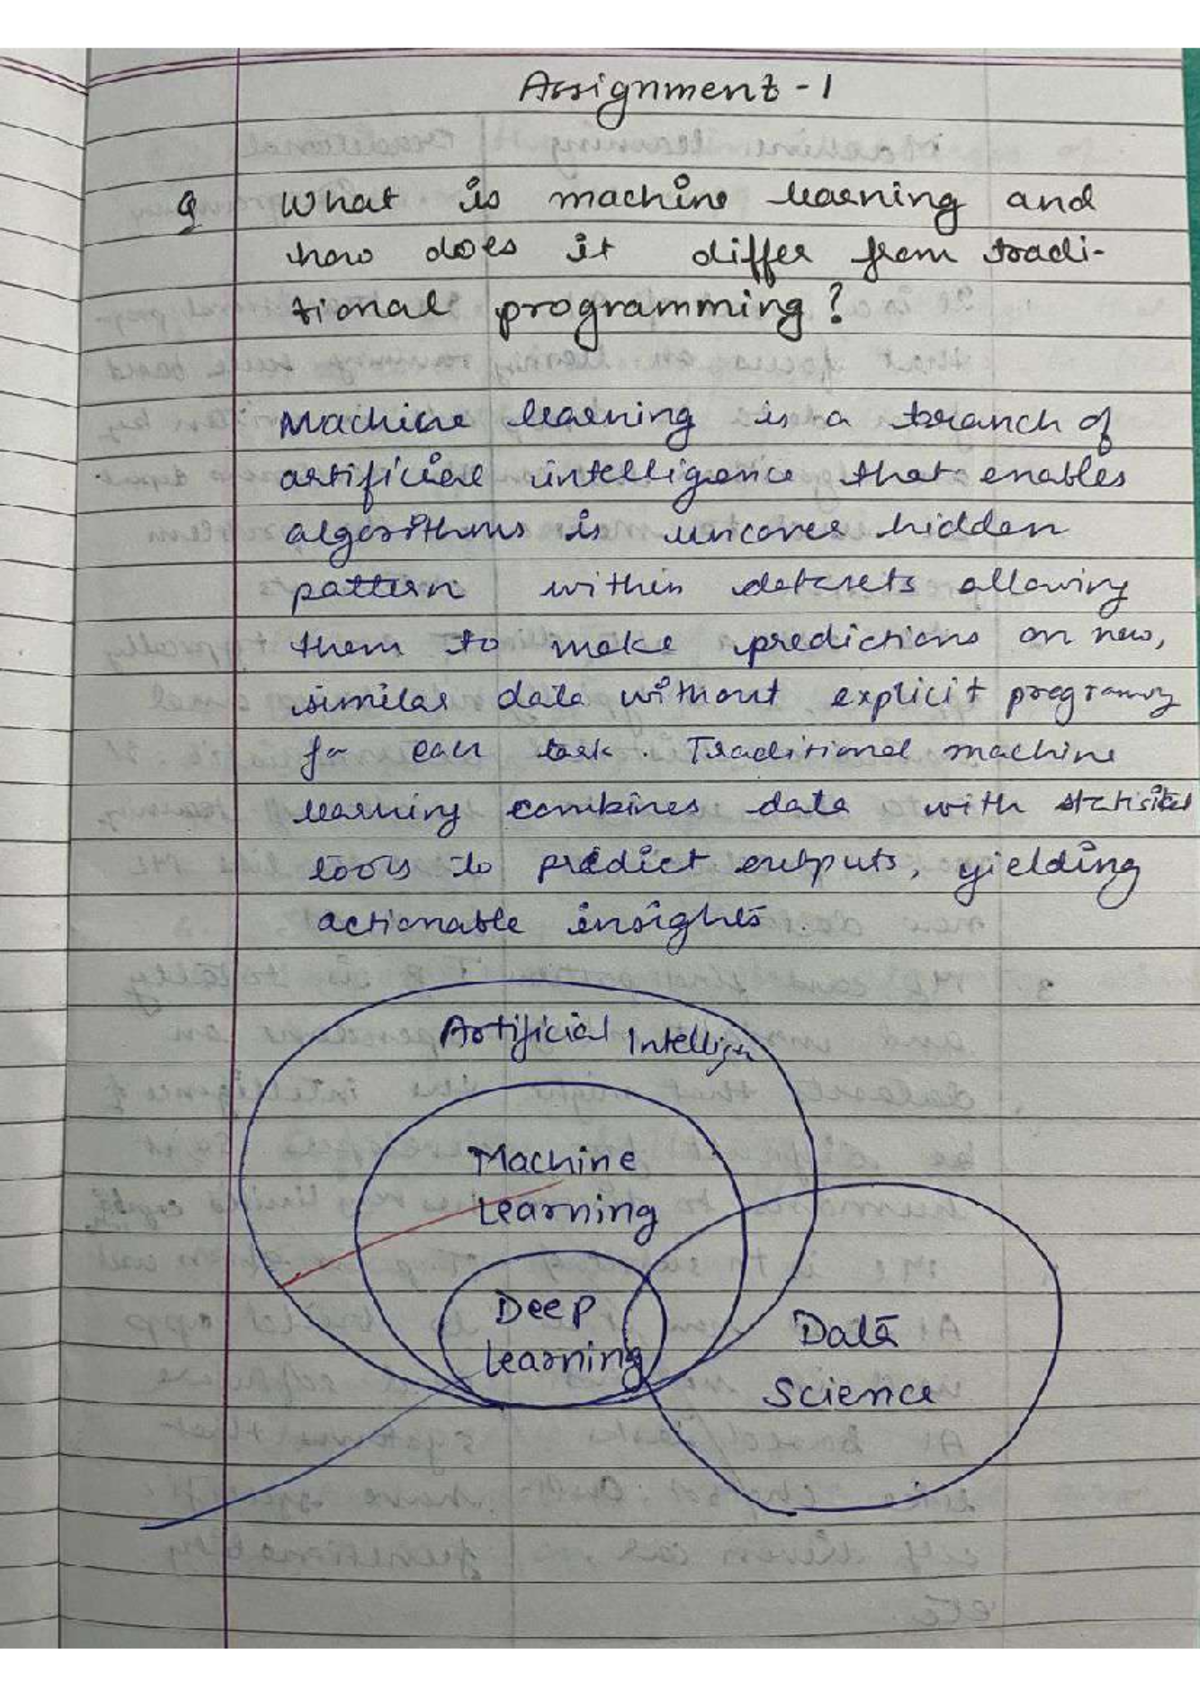 Assignment - 1
Q What is machine learning and
how does it differ from tradi-
tional programming?
Machine learning is a branch of
artificial intelligence that enables
algorithms is uncover hidden
pattern within datasets allowing
them to make predictions on new,
similar data without explicit programming
for each task. Traditional machine
learning combines data with statistical
tools to predict outputs, yielding
actionable insights.
Artificial Intelligen
Machine
Learning
Deep
Learning
Data
Science